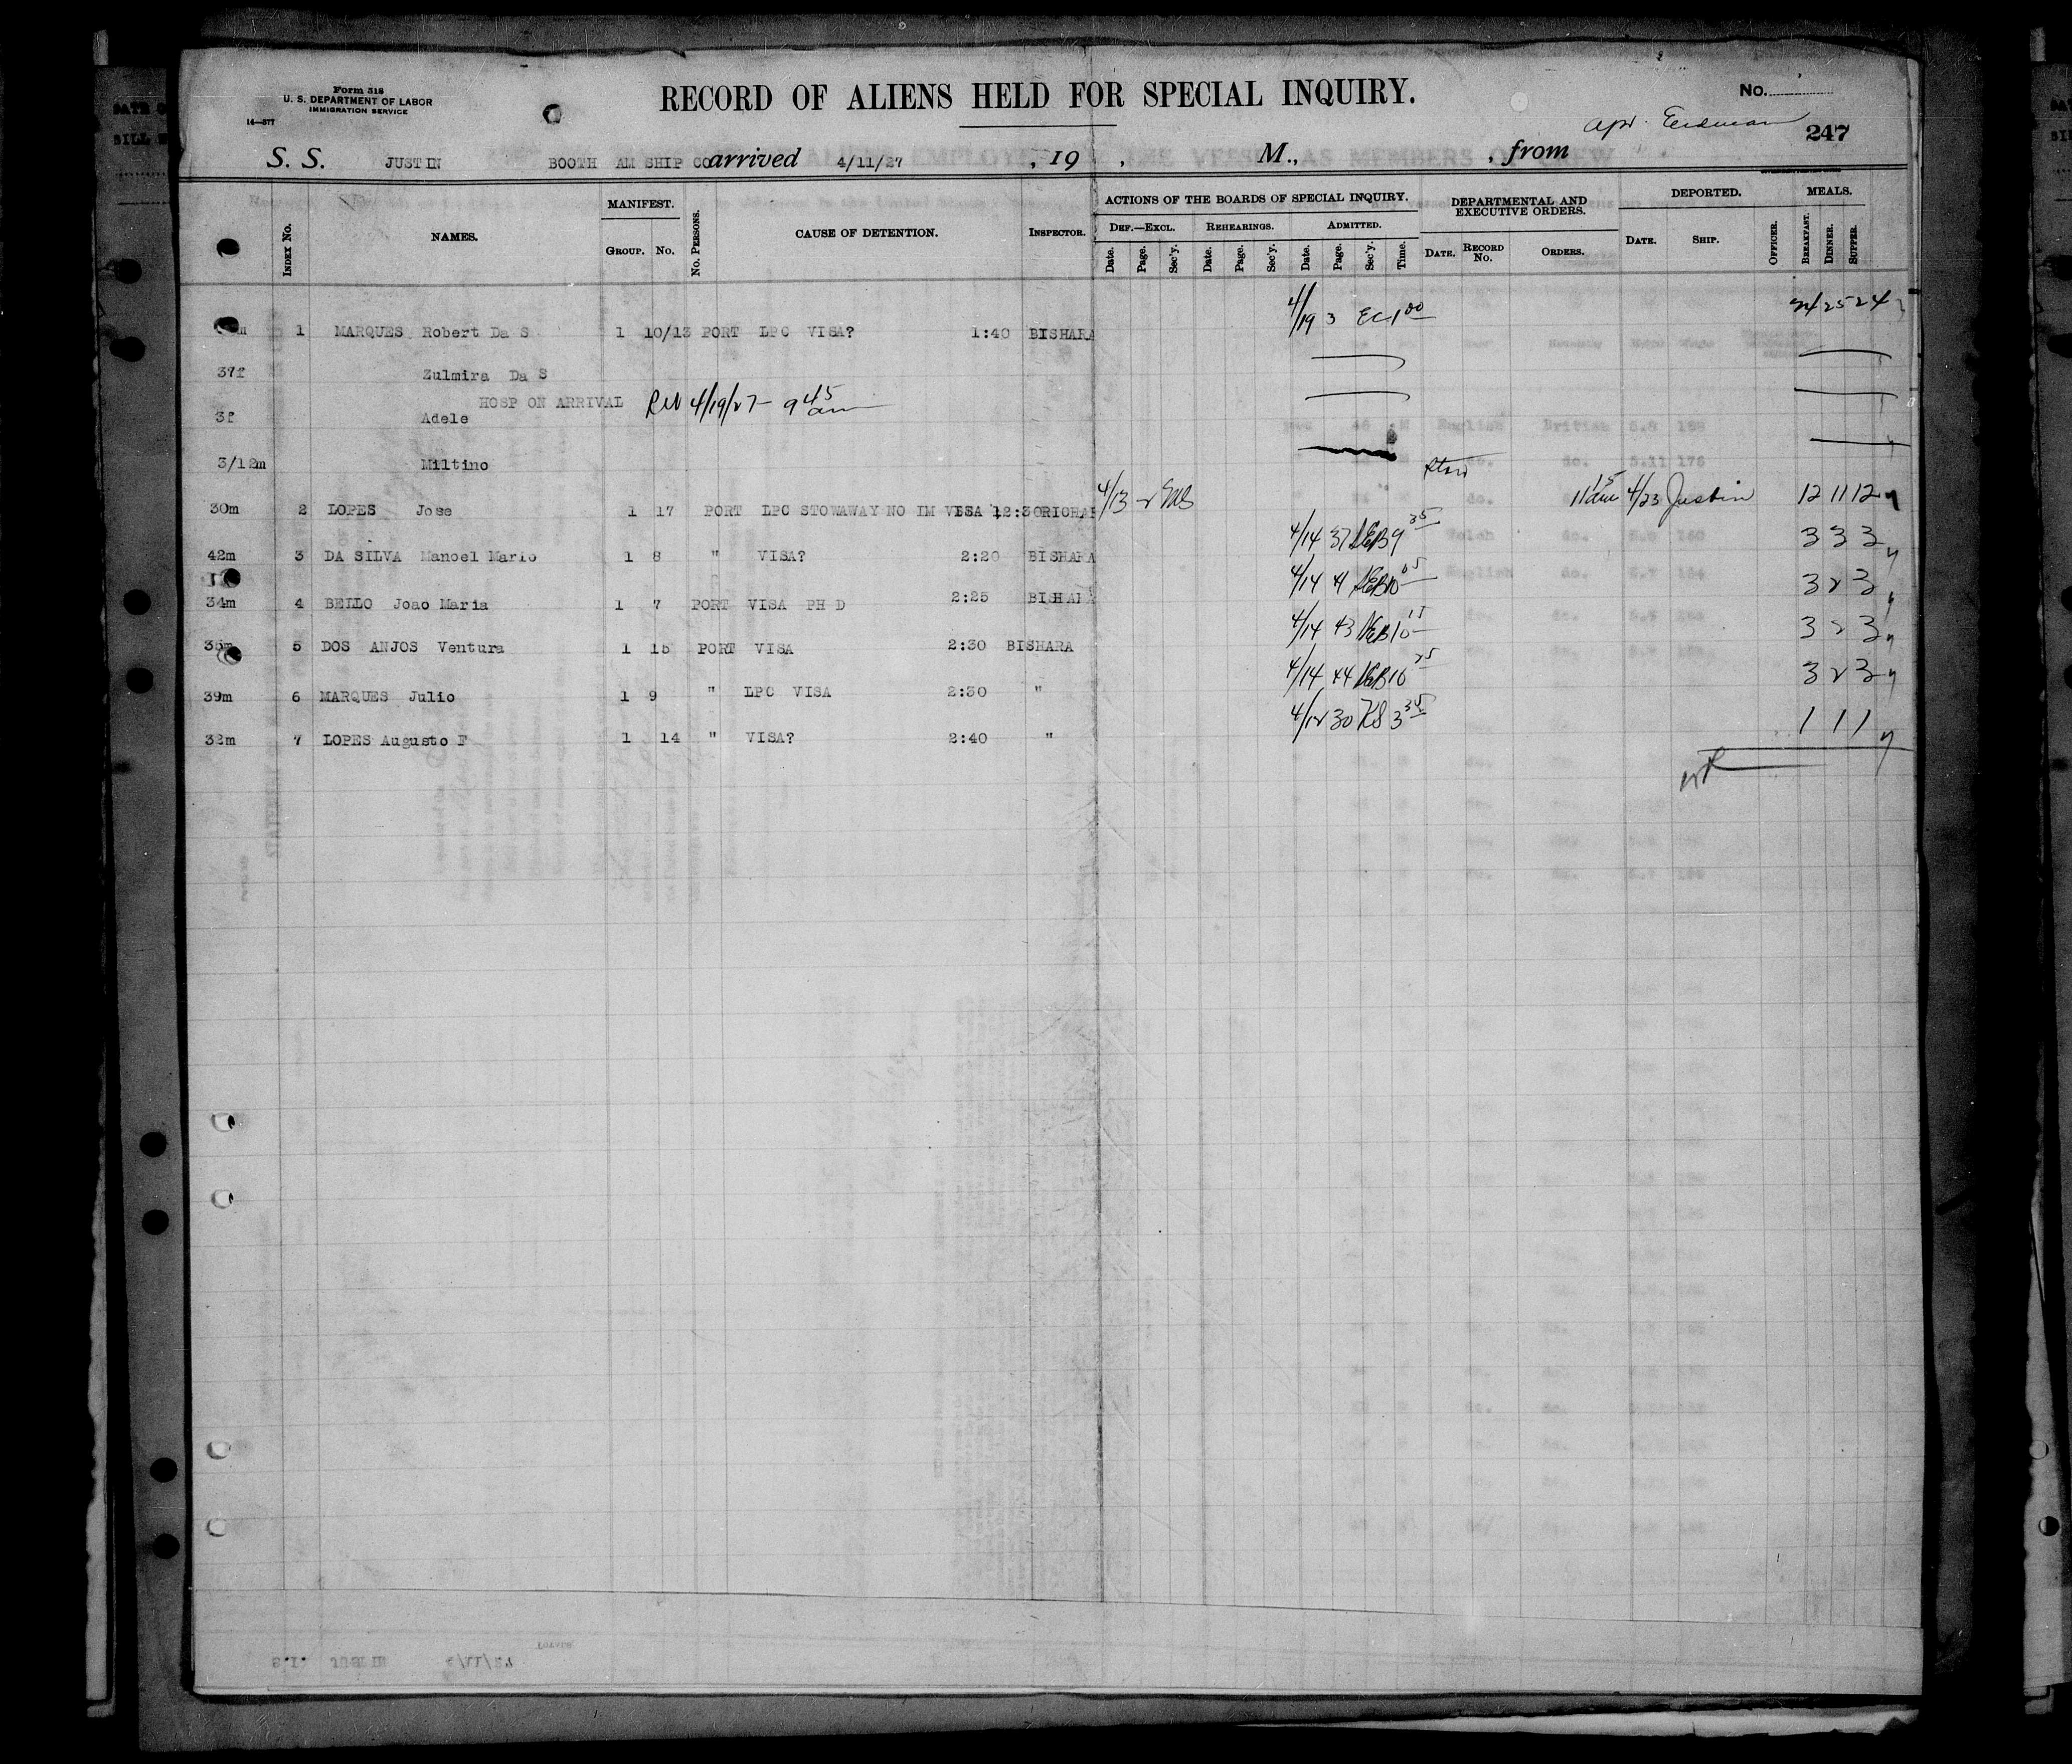 Form 518
U. S. DEPARTMENT OF LABOR
IMMIGRATION SERVICE
14—377
RECORD OF ALIENS HELD FOR SPECIAL INQUIRY.
No.
247
S. S. JUSTIN BOOTH AM SHIP CO arrived 4/11/27 , 19 , M., , from
INDEX No. NAMES. MANIFEST. GROUP. No. No. PERSONS. CAUSE OF DETENTION. INSPECTOR.
ACTIONS OF THE BOARDS OF SPECIAL INQUIRY. DEF.—EXCL. REHEARINGS. ADMITTED.
Date. Page. Sec'y. Date. Page. Sec'y. Date. Page. Sec'y. Time.
DEPARTMENTAL AND EXECUTIVE ORDERS. DATE. RECORD No. ORDERS.
DEPORTED. DATE. SHIP. OFFICER.
MEALS. BREAKFAST. DINNER. SUPPER.
1 MARQUES Robert Da S 1 10/13 PORT LPC VISA? 1:40 BISHARA 4/19 3 EC 1 00 24 25 24
37f Zulmira Da S
HOSP ON ARRIVAL 4/19/27 - 9 45 am
3f Adele
3/12m Miltino
30m 2 LOPES Jose 1 17 PORT LPC STOWAWAY NO IM VISA 4/13 2 11 15 am 4/23 Justin 12 11 12
42m 3 DA SILVA Manoel Mario 1 8 " VISA? 2:20 BISHARA 4/14 37 9 35 3 3 3
34m 4 BELLO Joao Maria 1 7 PORT VISA PH D 2:25 BISHARA 4/14 41 10 05 3 2 3
36m 5 DOS ANJOS Ventura 1 15 PORT VISA 2:30 BISHARA 4/14 43 10 15 3 2 3
39m 6 MARQUES Julio 1 9 " LPC VISA 2:30 " 4/14 44 10 25 3 2 3
32m 7 LOPES Augusto F 1 14 " VISA? 2:40 " 4/12 30 KS 3 35 1 1 1
TOTALS
S.I. JUSTIN 4/11/27